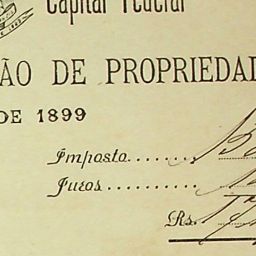 Capital Federal
ÃO DE PROPRIEDAD
DE 1899
Imposto.......
Juros..........
Rs.